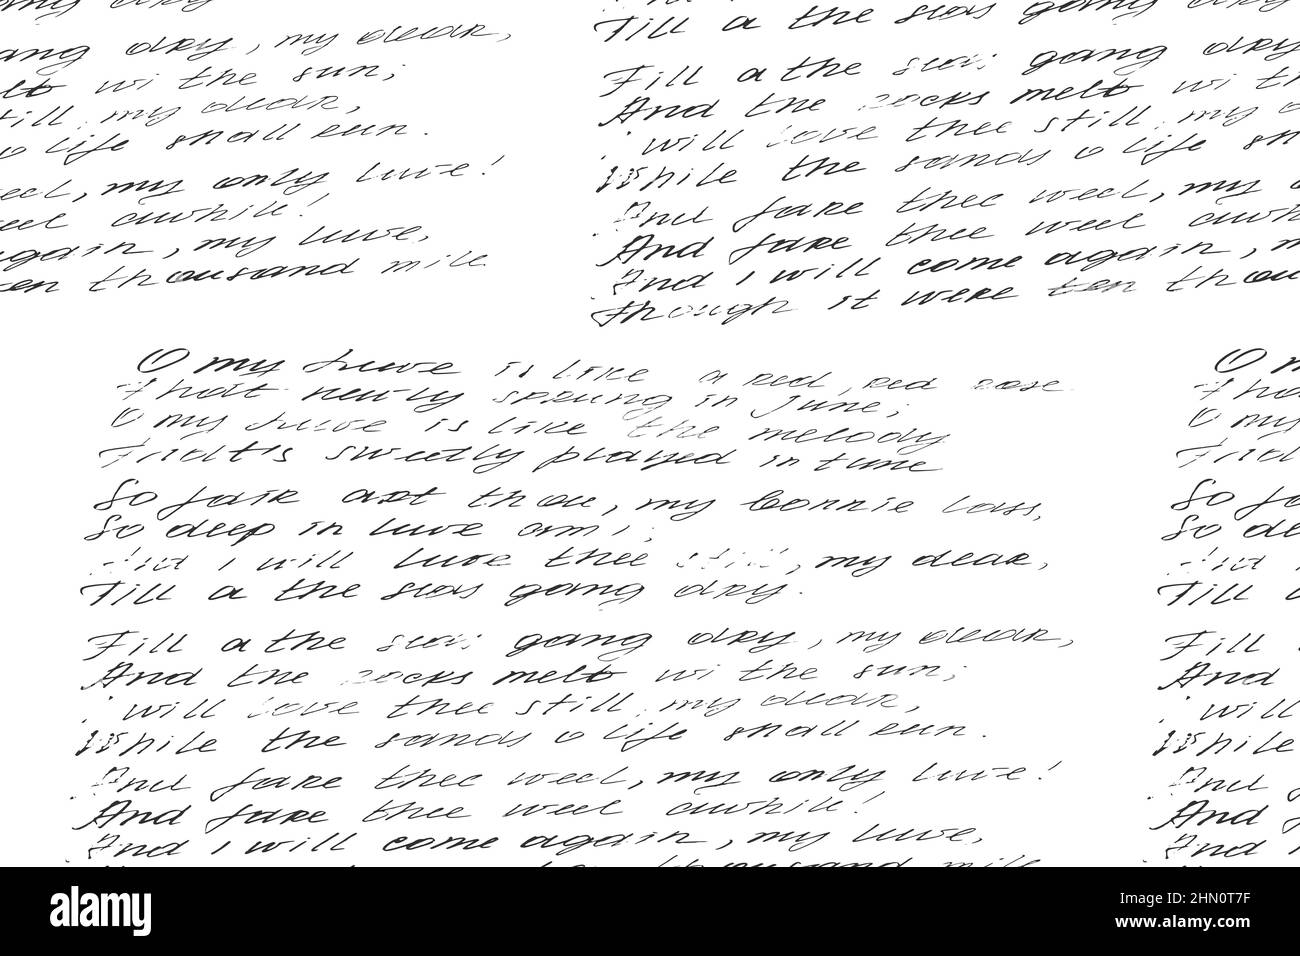 gang dry, my dear,
melt wi the sun;
still, my dear,
o life shall run.
weel, my only luve!
weel awhile!
again, my luve,
ten thousand mile
Fill a the seas gang dry
Fill a the seas gang dry
And the rocks melt wi th
i will love thee still, my d
While the sands o life sh
And fare thee weel, my o
And fare thee weel awh
And I will come again, m
though it were ten thou
O my Luve is like a red, red rose
That newly sprung in June;
O my Luve is like the melody
That's sweetly played in tune
So fair art thou, my bonnie lass,
So deep in luve am i;
And i will luve thee still, my dear,
Till a the seas gang dry.
Fill a the seas gang dry, my dear,
And the rocks melt wi the sun;
i will love thee still, my dear,
While the sands o life shall run.
And fare thee weel, my only luve!
And fare thee weel awhile!
And I will come again, my luve,
thousand mile
O m
That
O my
That
So fa
So de
And i
Till a
Fill
And
i will
While
And f
And f
And I
alamy
Image ID: 2HN0T7F
www.alamy.com